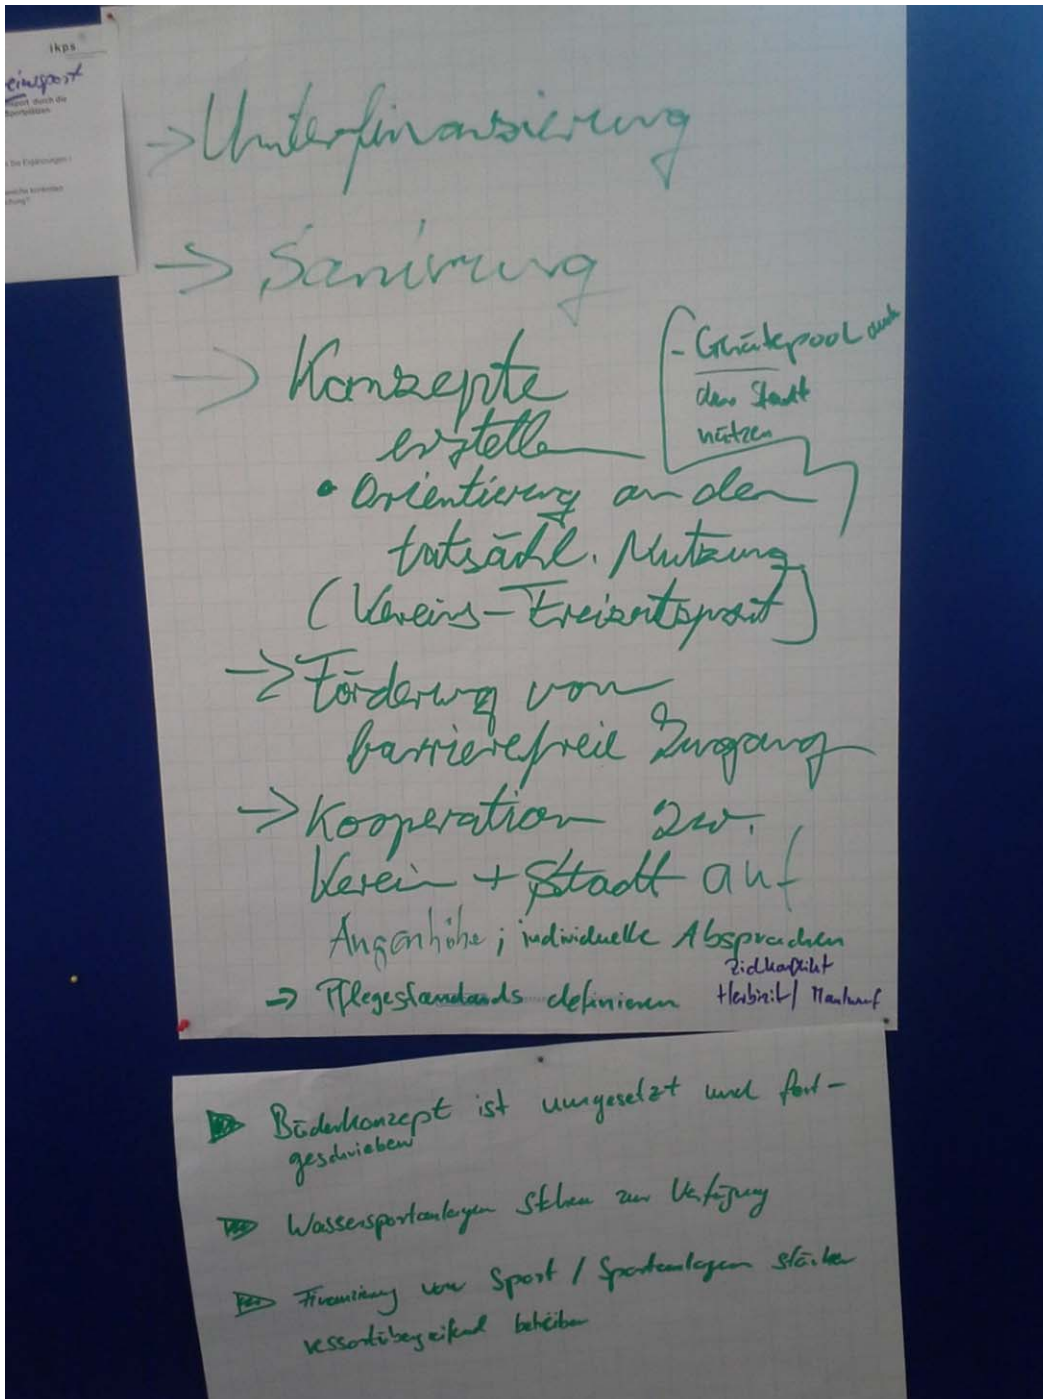 ikps
einsport
sport durch die
Sportstätten
Sie Ergänzungen!
→ Unterfinanzierung
→ Sanirung
→ Konzepte
erstelle
- Geräte­pool auch
der Stadt
nützen
• Orientierung an den
tatsächl. Nutzung
(Vereins-Freizeitsport)
→ Förderung von
barrierefreie Zugang
→ Kooperation zw.
Verein + Stadt auf
Augenhöhe; individuelle Absprachen
→ Pflegestandards definieren
Zielkonflikt
Herbizit / Maulwurf
Bäderkonzept ist umgesetzt und fort-
geschrieben
Wassersportanlagen stehen zur Verfügung
Finanzierung von Sport / Sportanlagen stärker
ressortübergreifend